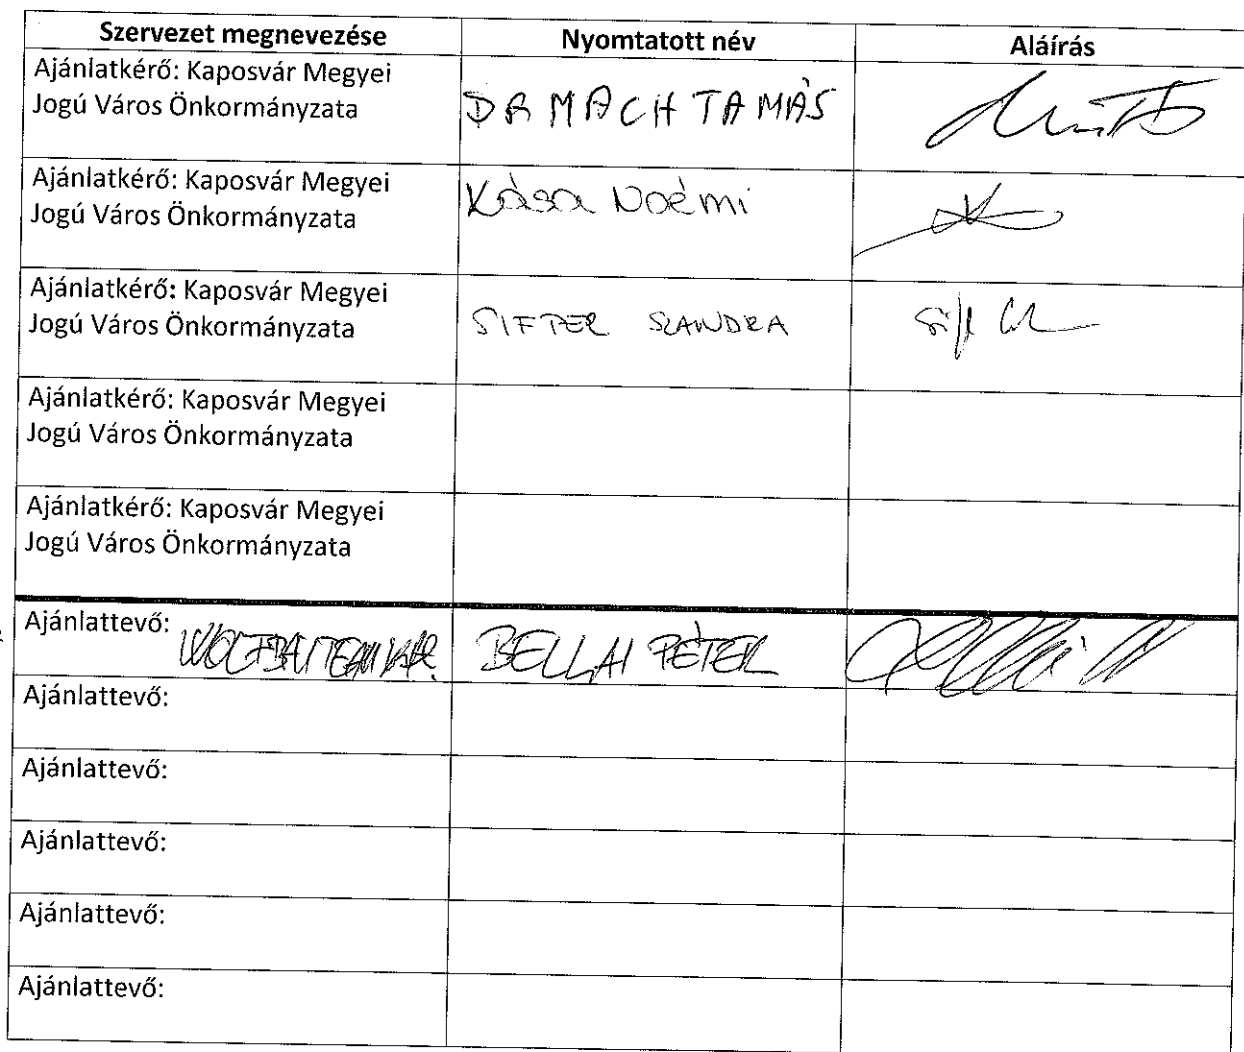 Szervezet megnevezése Nyomtatott név Aláírás
Ajánlatkérő: Kaposvár Megyei
Jogú Város Önkormányzata DR MACH TAMÁS
Ajánlatkérő: Kaposvár Megyei
Jogú Város Önkormányzata Kása Noémi
Ajánlatkérő: Kaposvár Megyei
Jogú Város Önkormányzata SIFTER SZANDRA
Ajánlatkérő: Kaposvár Megyei
Jogú Város Önkormányzata
Ajánlatkérő: Kaposvár Megyei
Jogú Város Önkormányzata
Ajánlattevő: BELLAI PÉTER
Ajánlattevő:
Ajánlattevő:
Ajánlattevő:
Ajánlattevő:
Ajánlattevő: